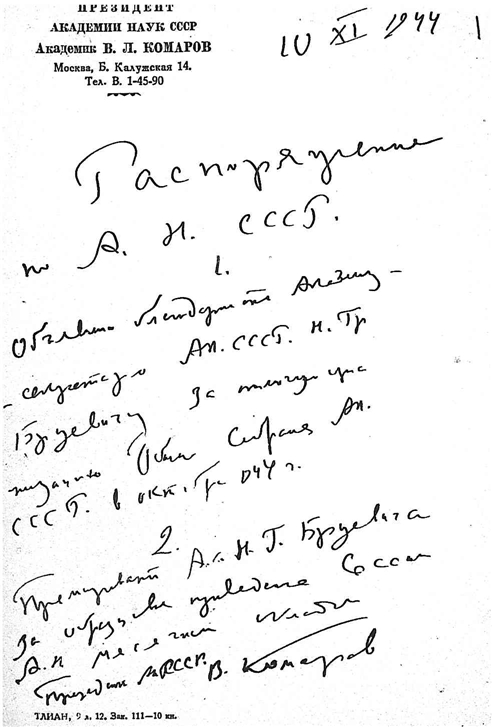 ПРЕЗИДЕНТ
АКАДЕМИИ НАУК СССР
Академик В. Л. КОМАРОВ
Москва, Б. Калужская 14.
Тел. В. 1-45-90
10 XI 1944
1
Распоряжение
по А. Н. СССР.
1.
Объявить благодарность Академику-
-секретарю Ак. СССР. Н. Гр
Бруевичу за
Общего Собрания Ак.
СССР. в октябре 1944 г.
2.
Премировать Ак. Н. Г. Бруевича
за проведение Сессии
А.Н месячным
Президент АН СССР. В. Комаров
ТЛИАН, 9 л. 12. Зак. 111—10 кн.